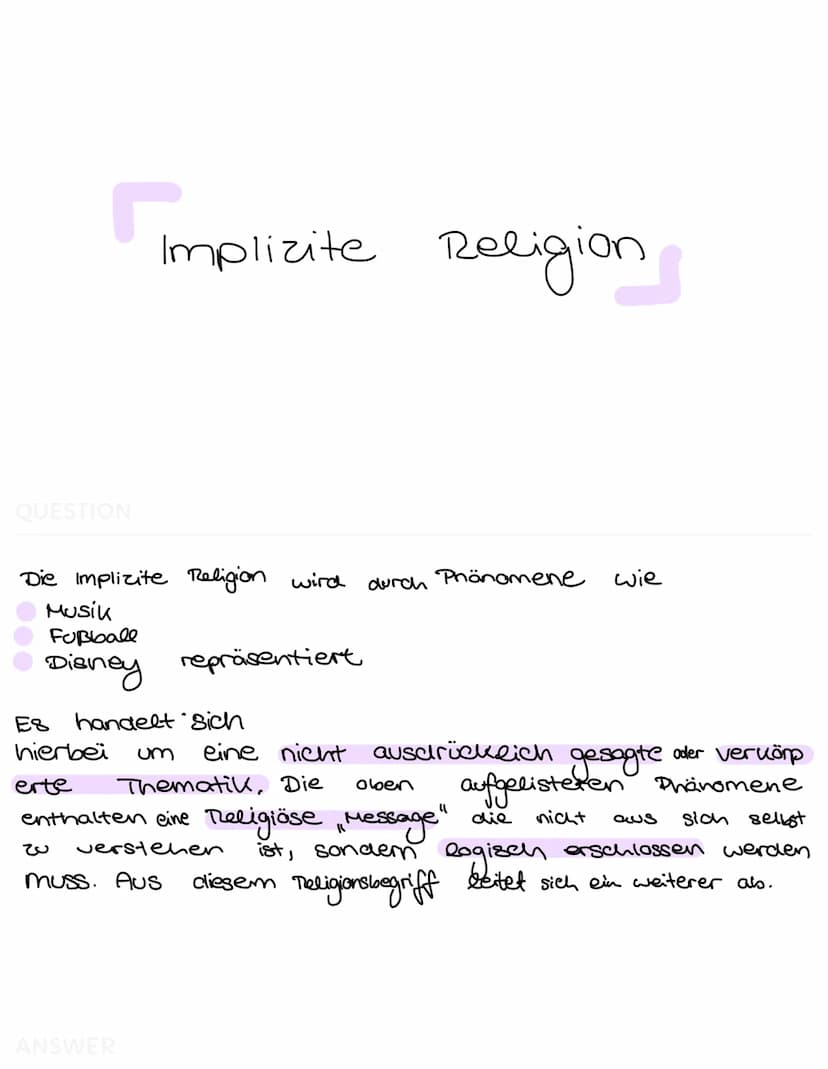 Implizite Religion
QUESTION
Die Implizite Religion wird durch Phänomene wie
Musik
Fußball
Disney repräsentiert
Es handelt sich
hierbei um eine nicht ausdrücklich gesagte oder verkörp
erte Thematik. Die oben aufgelisteten Phänomene
enthalten eine Religiöse „Message" die nicht aus sich selbst
zu verstehen ist, sondern logisch erschlossen werden
muss. Aus diesem Religionsbegriff leitet sich ein weiterer ab.
ANSWER